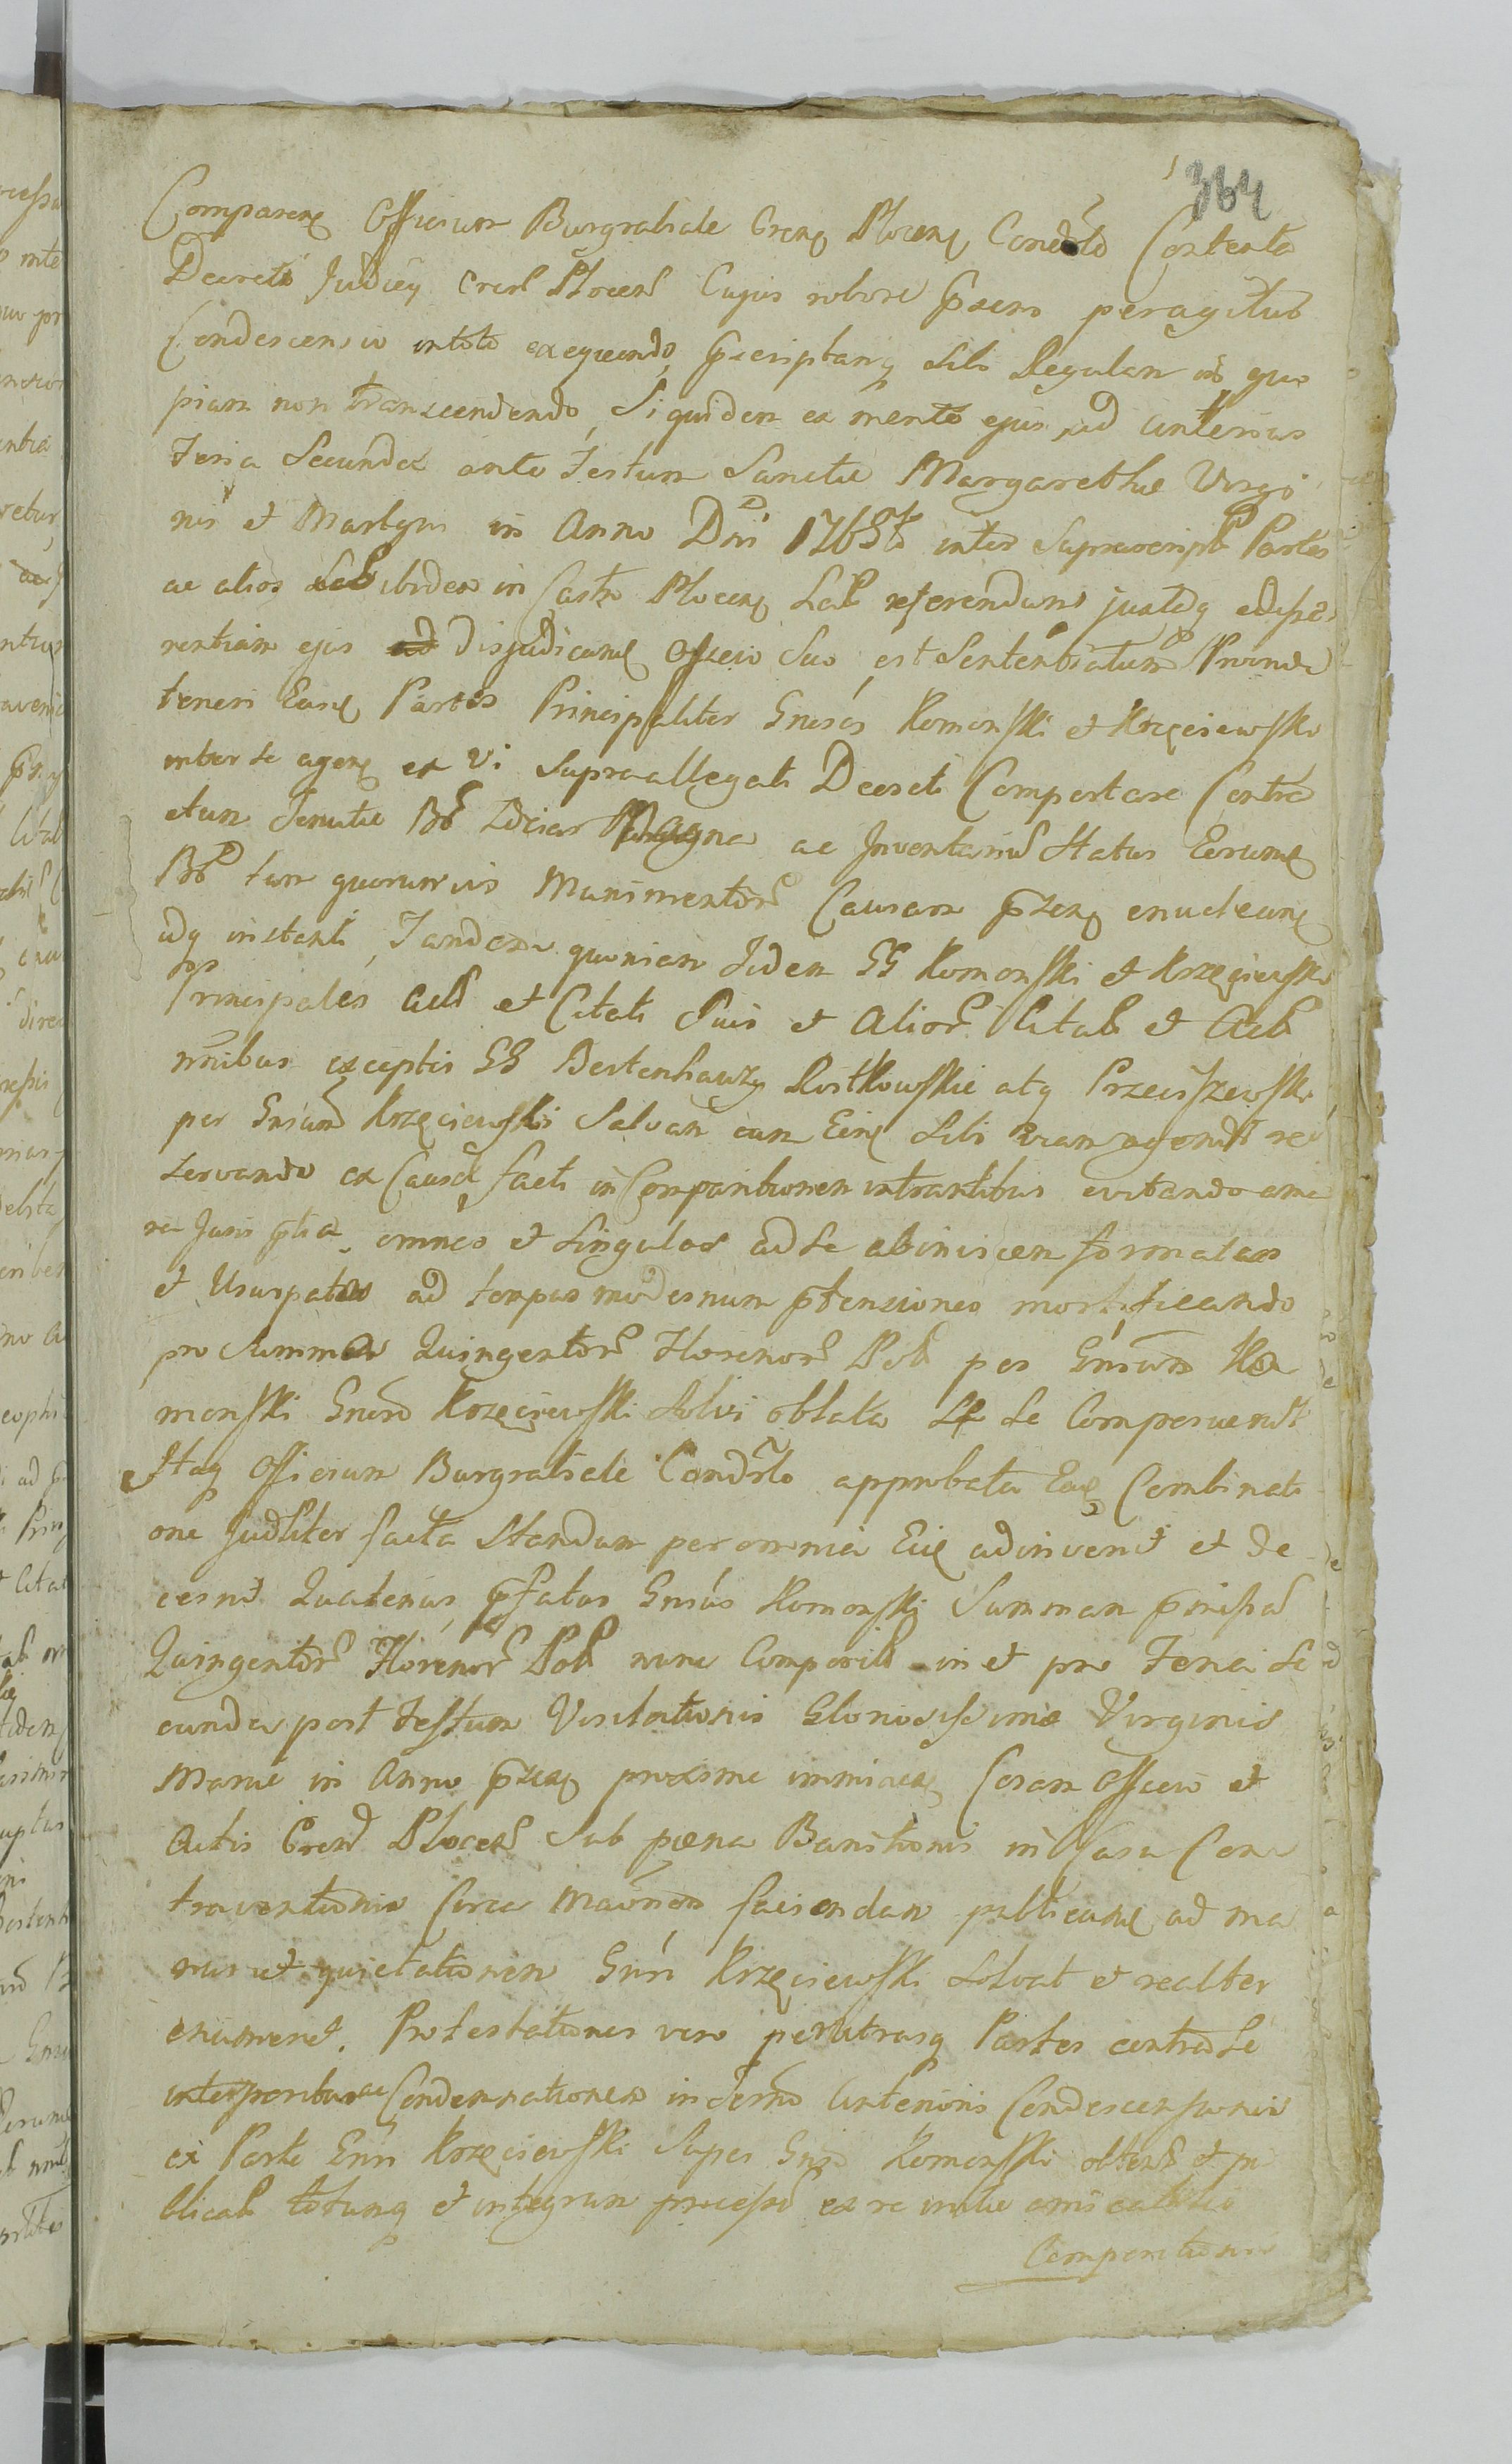 364
Comparen Officium Burgrabiale Cren Plocen Condto Contento
Decreti Judicy Cresl Plocens Cujus robore pñsens peragitur
Condescensio in toto exequendo, pscriptamq sibi Regulam in quo
piam non transcendendo, Siquidem ex mente ejus ad anterius
Feria Secunda ante Festum Sanctae Margarethae Virgi
nis et Martyris in Anno Dni 1765to inter Suprascript Partes
ac alios ibidem in Castro Plocen referendum juxtaq
rentiam ejus disjudicand Officio Suo est Sententiatum Proinde
teneri Easd Partes Principaliter Gnosos Romonski et Krzęciewski
inter se agen ex vi supraallegati Decreti Comportare Contra
ctum Tenutae Bo Magna ac Inventariu Status Eorund
Bo tum quorumvis Munimentor Causam pñsen enucleand
adq instanti, Tandem quoniam Iidem GG Romonski et Krzęciewski
Principales Act et Citati Suis et Alior Citat et Act
omnibus exceptis GG Bertenhauzy Rostkowskie atq Przeciszewski
per Gnsum Krzęciewski Salvam cum Eisd sibi viam agendi re
servando ex Causa facti in Comparitionem intrantibus evitando
Juris omnes et singulas ad se abinvicem formatas
et Usurpatas ad tempus modernum ptensiones mortificando
pro Summa Quingentor Florenor Pol per Gnsum Ro
monski Gnoso Krzęciewski Solvi oblata se Comperuerunt
Itaq Officium Burgrabiale Condto approbata Ead Combinati
one Judliter facta Standum per omnia Eid adinvenit et de
cernit Quatenus pfatus Gnsus Romonski Summam prncipal
Quingentor Florenor Pol nunc Comporit in et pro Feria Se
cunda post Festum Visitationis Gloriosissimae Virginis
Mariae in Anno pñsen proxime imminen Coram Officio et
Actis Cren Plocens Sub poena Banitionis in Casu Con
traventionis Circa faciendam publicand ad ma
nus et quietationem Gnsi Krzęciewski Solvat et realiter
enumeret. Protestationes vero per utrasq Partes contra se
interpositas ac Condemnationem in Termo Anterioris Condescensionis
ex Parte Gnsi Krzęciewski Super Gnso Romonski obtent et pu
blicat totumq et integrum processu ex re initae amicabilis
Compositionis